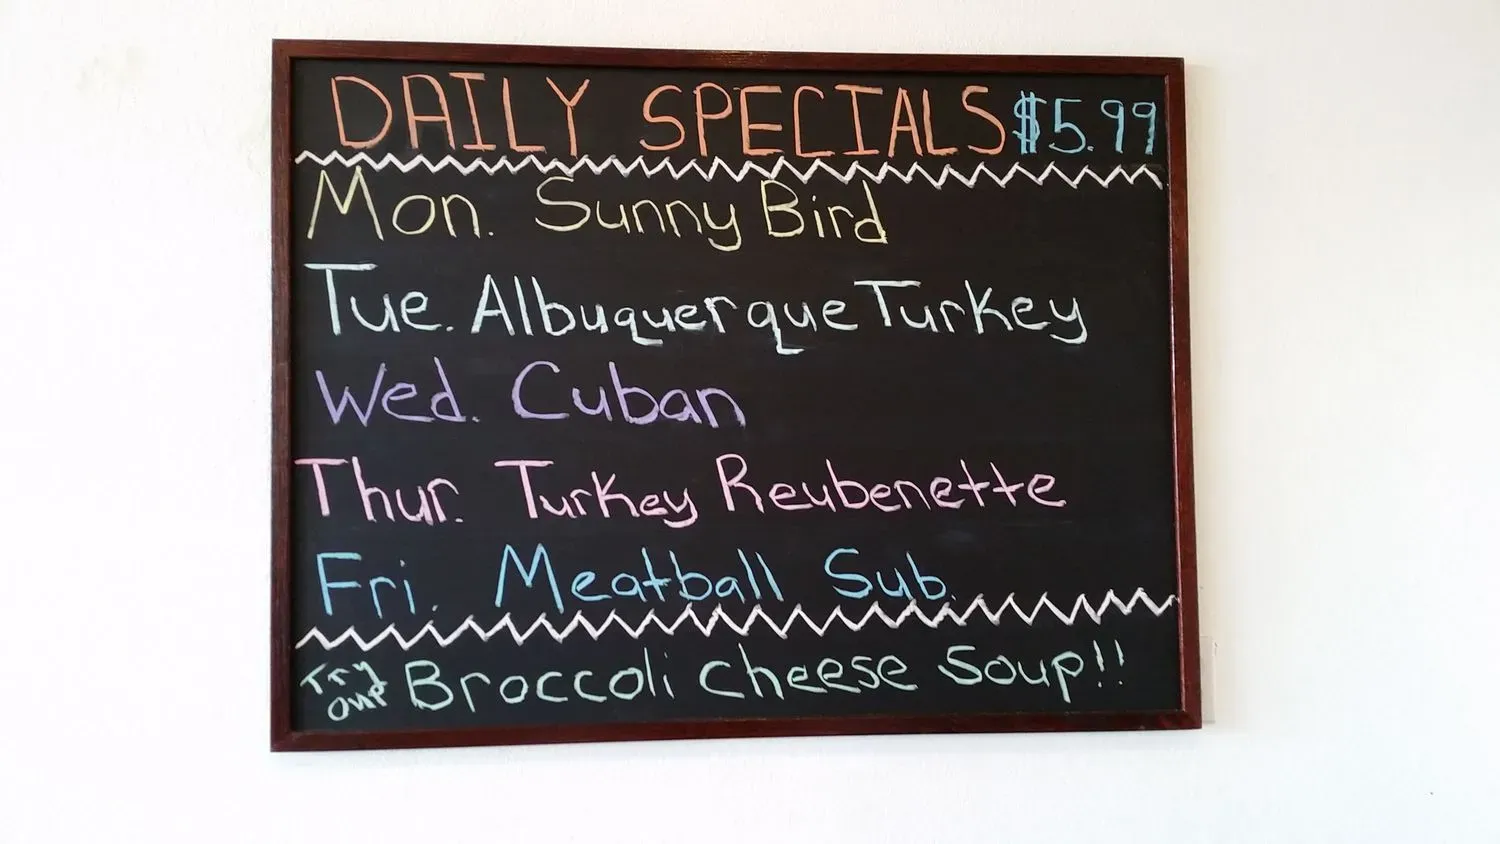 DAILY SPECIALS $5.99
Mon. Sunny Bird
Tue. Albuquerque Turkey
Wed. Cuban
Thur. Turkey Reubenette
Fri. Meatball Sub.
Try our Broccoli Cheese Soup!!